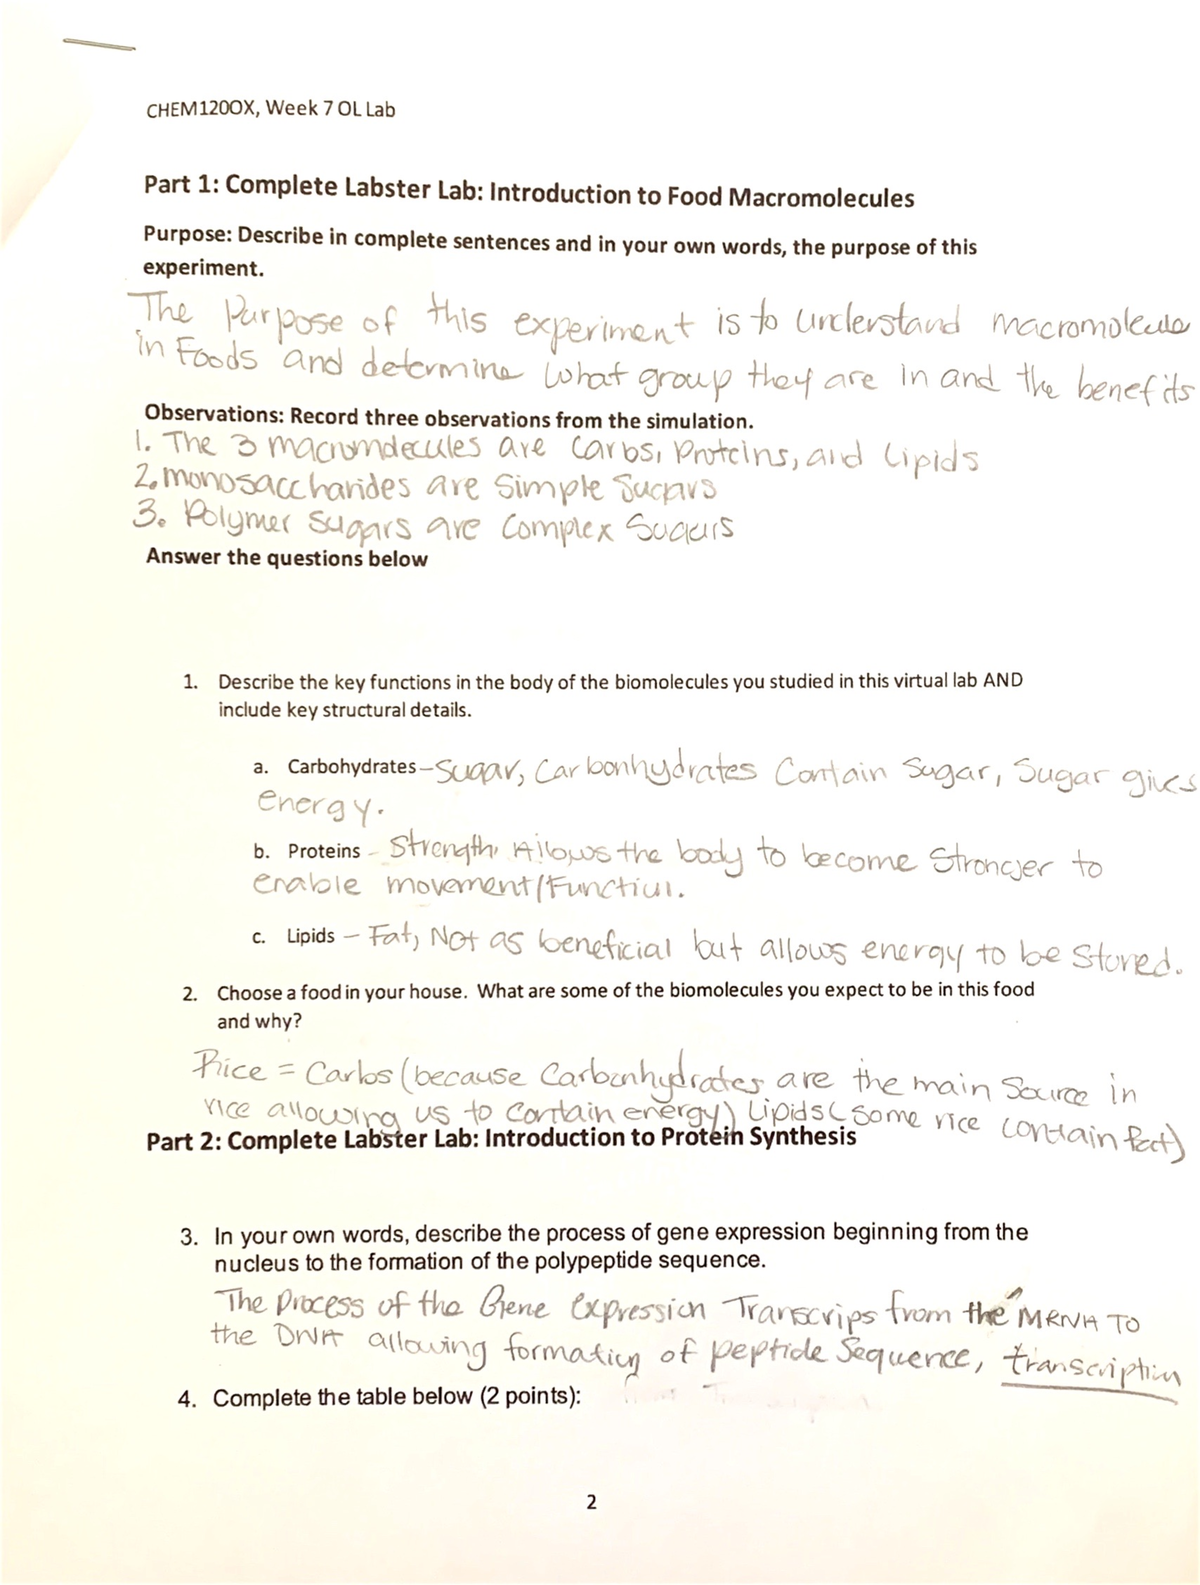 CHEM120OX, Week 7 OL Lab
Part 1: Complete Labster Lab: Introduction to Food Macromolecules
Purpose: Describe in complete sentences and in your own words, the purpose of this
experiment.
The Purpose of this experiment is to understand macromolecule
in Foods and determine what group they are in and the benefits
Observations: Record three observations from the simulation.
1. The 3 macromolecules are Carbs, Proteins, and Lipids
2. monosaccharides are Simple Sugars
3. Polymer Sugars are Complex Sugars
Answer the questions below
1. Describe the key functions in the body of the biomolecules you studied in this virtual lab AND
include key structural details.
a. Carbohydrates - Sugar, Carbonhydrates Contain Sugar, Sugar gives
energy.
b. Proteins - Strength, Allows the body to become Stronger to
enable movement/Function.
c. Lipids - Fat, Not as beneficial but allows energy to be Stored.
2. Choose a food in your house. What are some of the biomolecules you expect to be in this food
and why?
Rice = Carbs (because Carbonhydrates are the main Source in
rice allowing us to contain energy) Lipids (some rice contain fact)
Part 2: Complete Labster Lab: Introduction to Protein Synthesis
3. In your own words, describe the process of gene expression beginning from the
nucleus to the formation of the polypeptide sequence.
The Process of the Gene Expression Transcrips from the MRNA TO
the DNA allowing formation of peptide Sequence, transcription
4. Complete the table below (2 points):
2